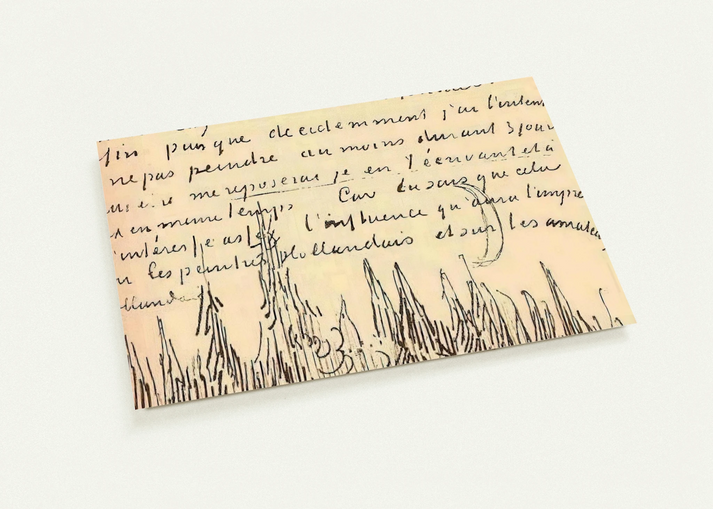 puisque decidemment j'ai l'inten
ne pas peindre au moins durant 3 jours
me reposerai je en t'écrivant et à
en meme temps Car tu sais que cela
l'influence qu'aura l'impre
les peintres Hollandais et sur les amateu
llandais